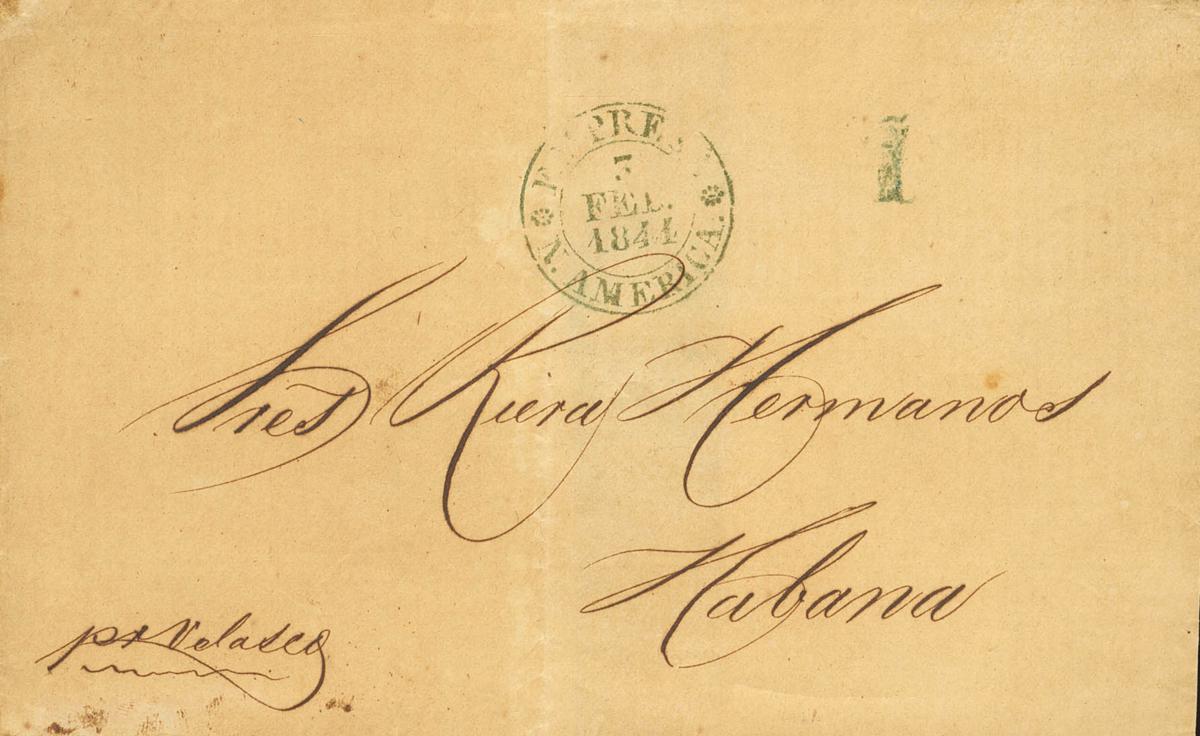 EMPRESA
3
FEB.
1844
N. AMERICA.
1
Sres Riera Hermanos
Habana
pr Velasco